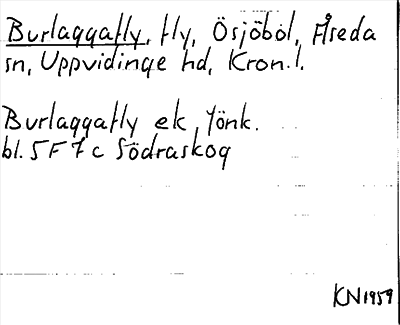 Burlaggafly, fly, Ösjöbol, Åseda
sn, Uppvidinge hd, Kron. l.
Burlaggafly ek, Jönk.
bl. 5F7c Södraskog
KN1959